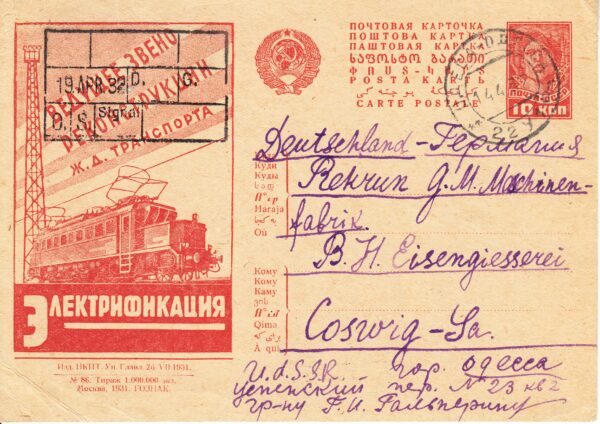 ВЕДУЩЕЕ ЗВЕНО
РЕКОНСТРУКЦИИ
Ж.Д. ТРАНСПОРТА
19 APR 32
D.
G.
D.I.S.
Signal
ЭЛЕКТРИФИКАЦИЯ
Изд. НКПТ. Уп. Главл. 24 VII 1931.
№ 86. Тираж 1.000.000 экз.
Москва, 1931. ГОЗНАК.
ПОЧТОВАЯ КАРТОЧКА
ПОШТОВА КАРТКА
ПАШТОВАЯ КАРТКА
POSTA KARTЬ
CARTE POSTALE
ПОЧТА
10 КОП
22
Deutschland - Германия
Куди
Куды
Haraja
Où
G. M. Maschinen-
fabrik
B. H. Eisengiesserei
Кому
Кому
Каму
Qima
À qui
Coswig-Sa.
U.d.S.S.R. гор. Одесса
Успенский пер. N 23 кв 2
гр-ну Г. И. Гальперину